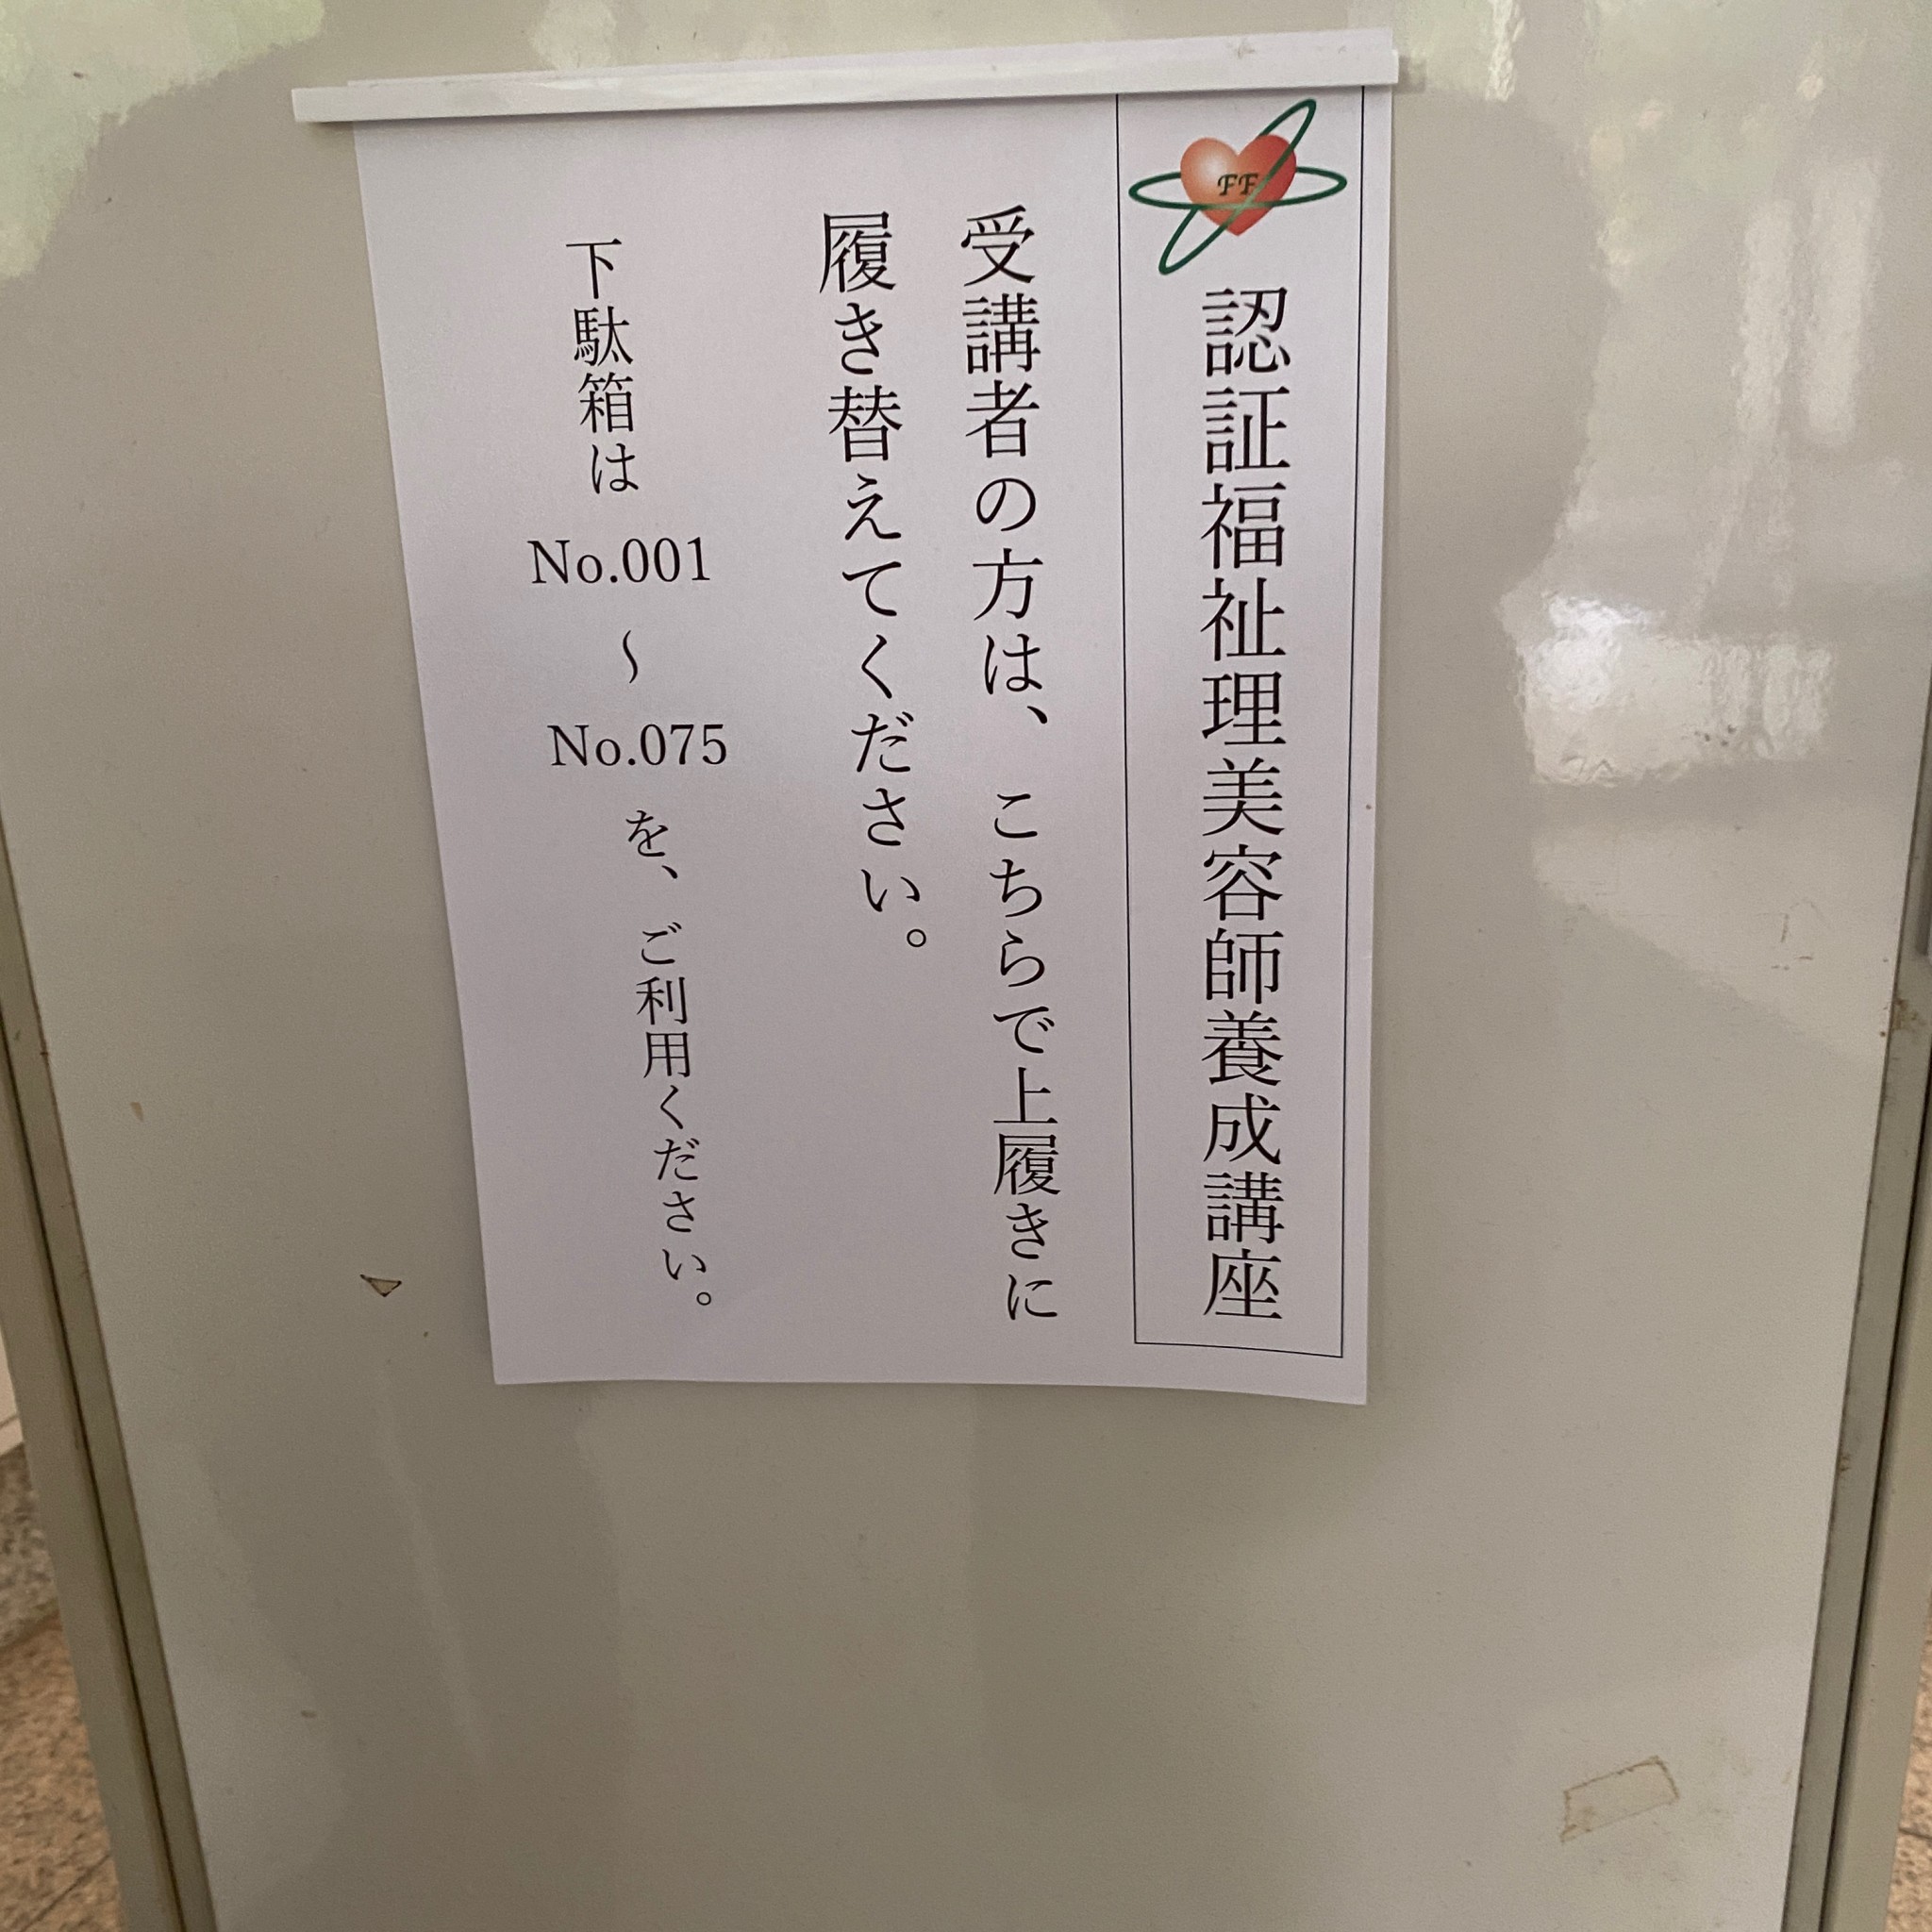 FF
認証福祉理美容師養成講座
受講者の方は、こちらで上履きに
履き替えてください。
下駄箱は No.001 〜 No.075 を、ご利用ください。